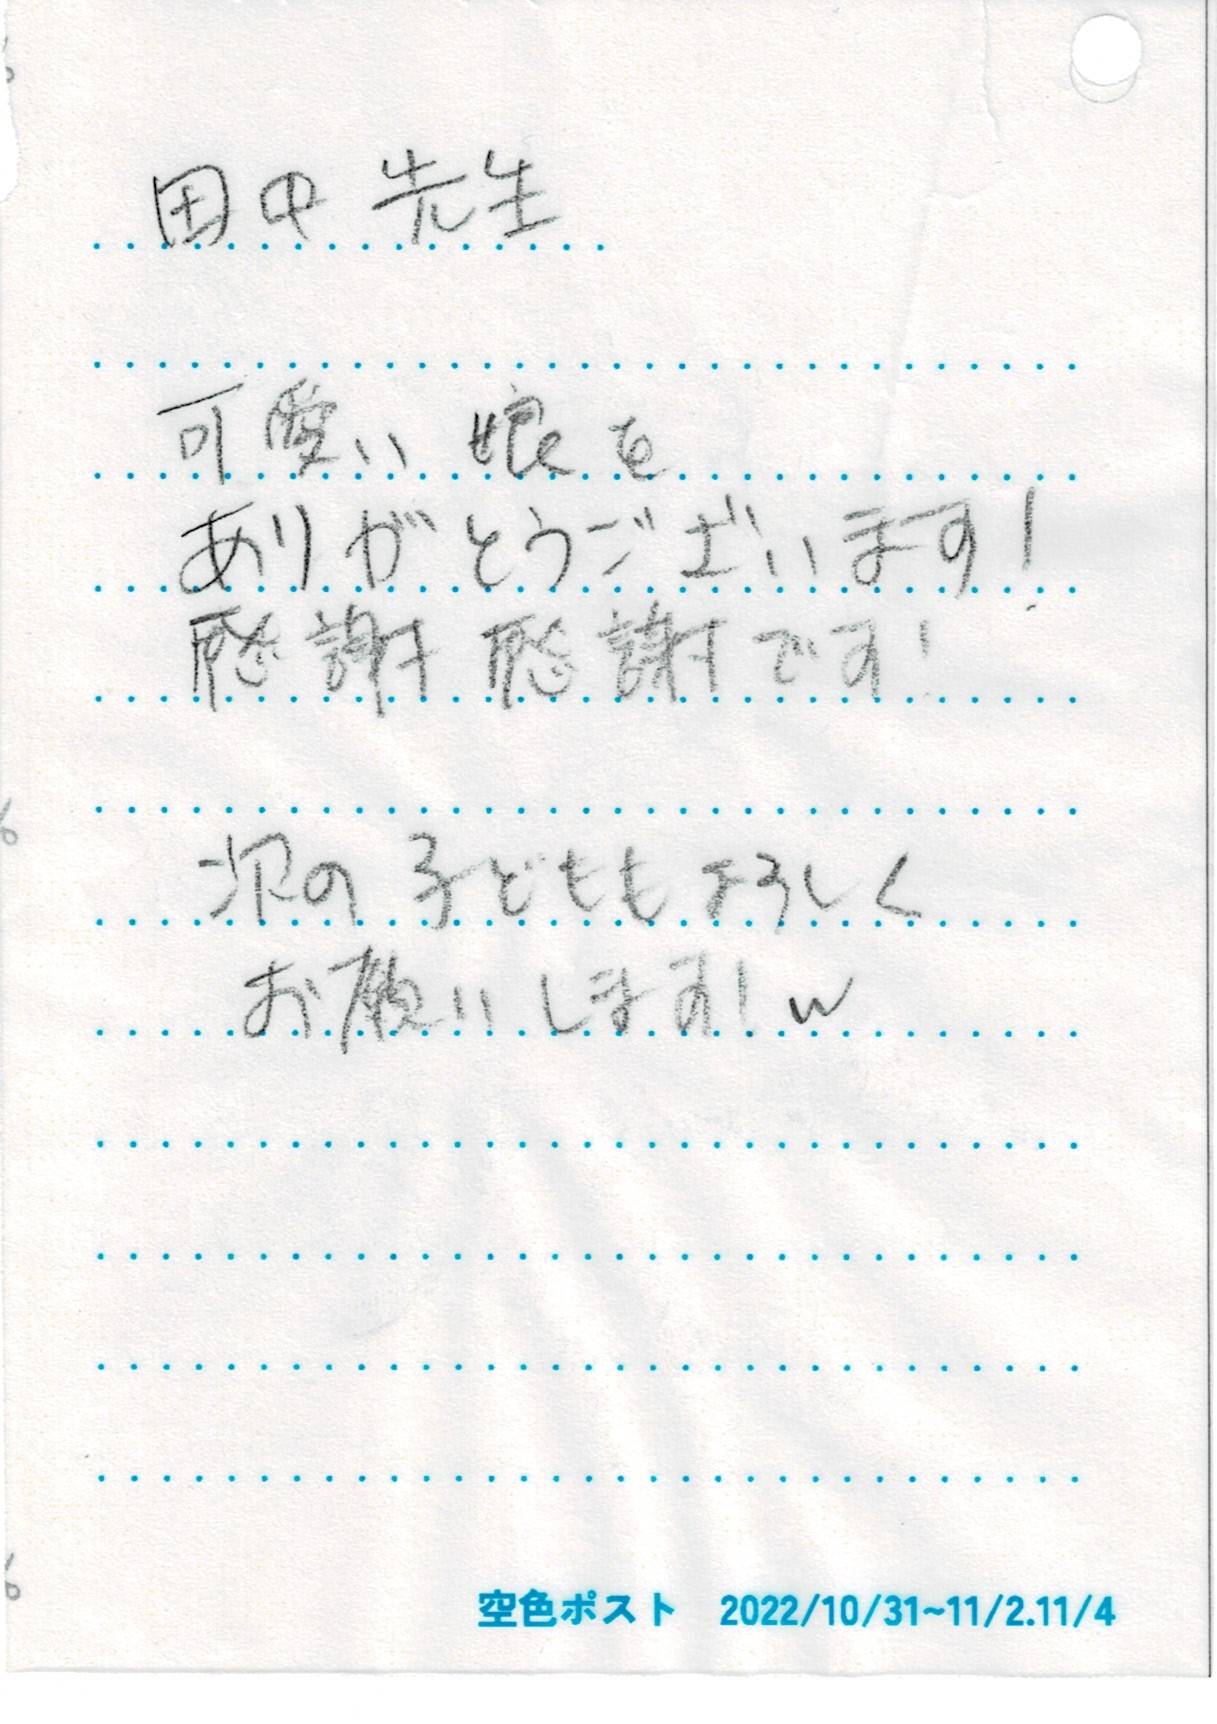 田中 先生
可愛い 娘を
ありがとうございます!
感謝 感謝です!
次の 子どももよろしく
お願いします!w
空色ポスト 2022/10/31~11/2.11/4